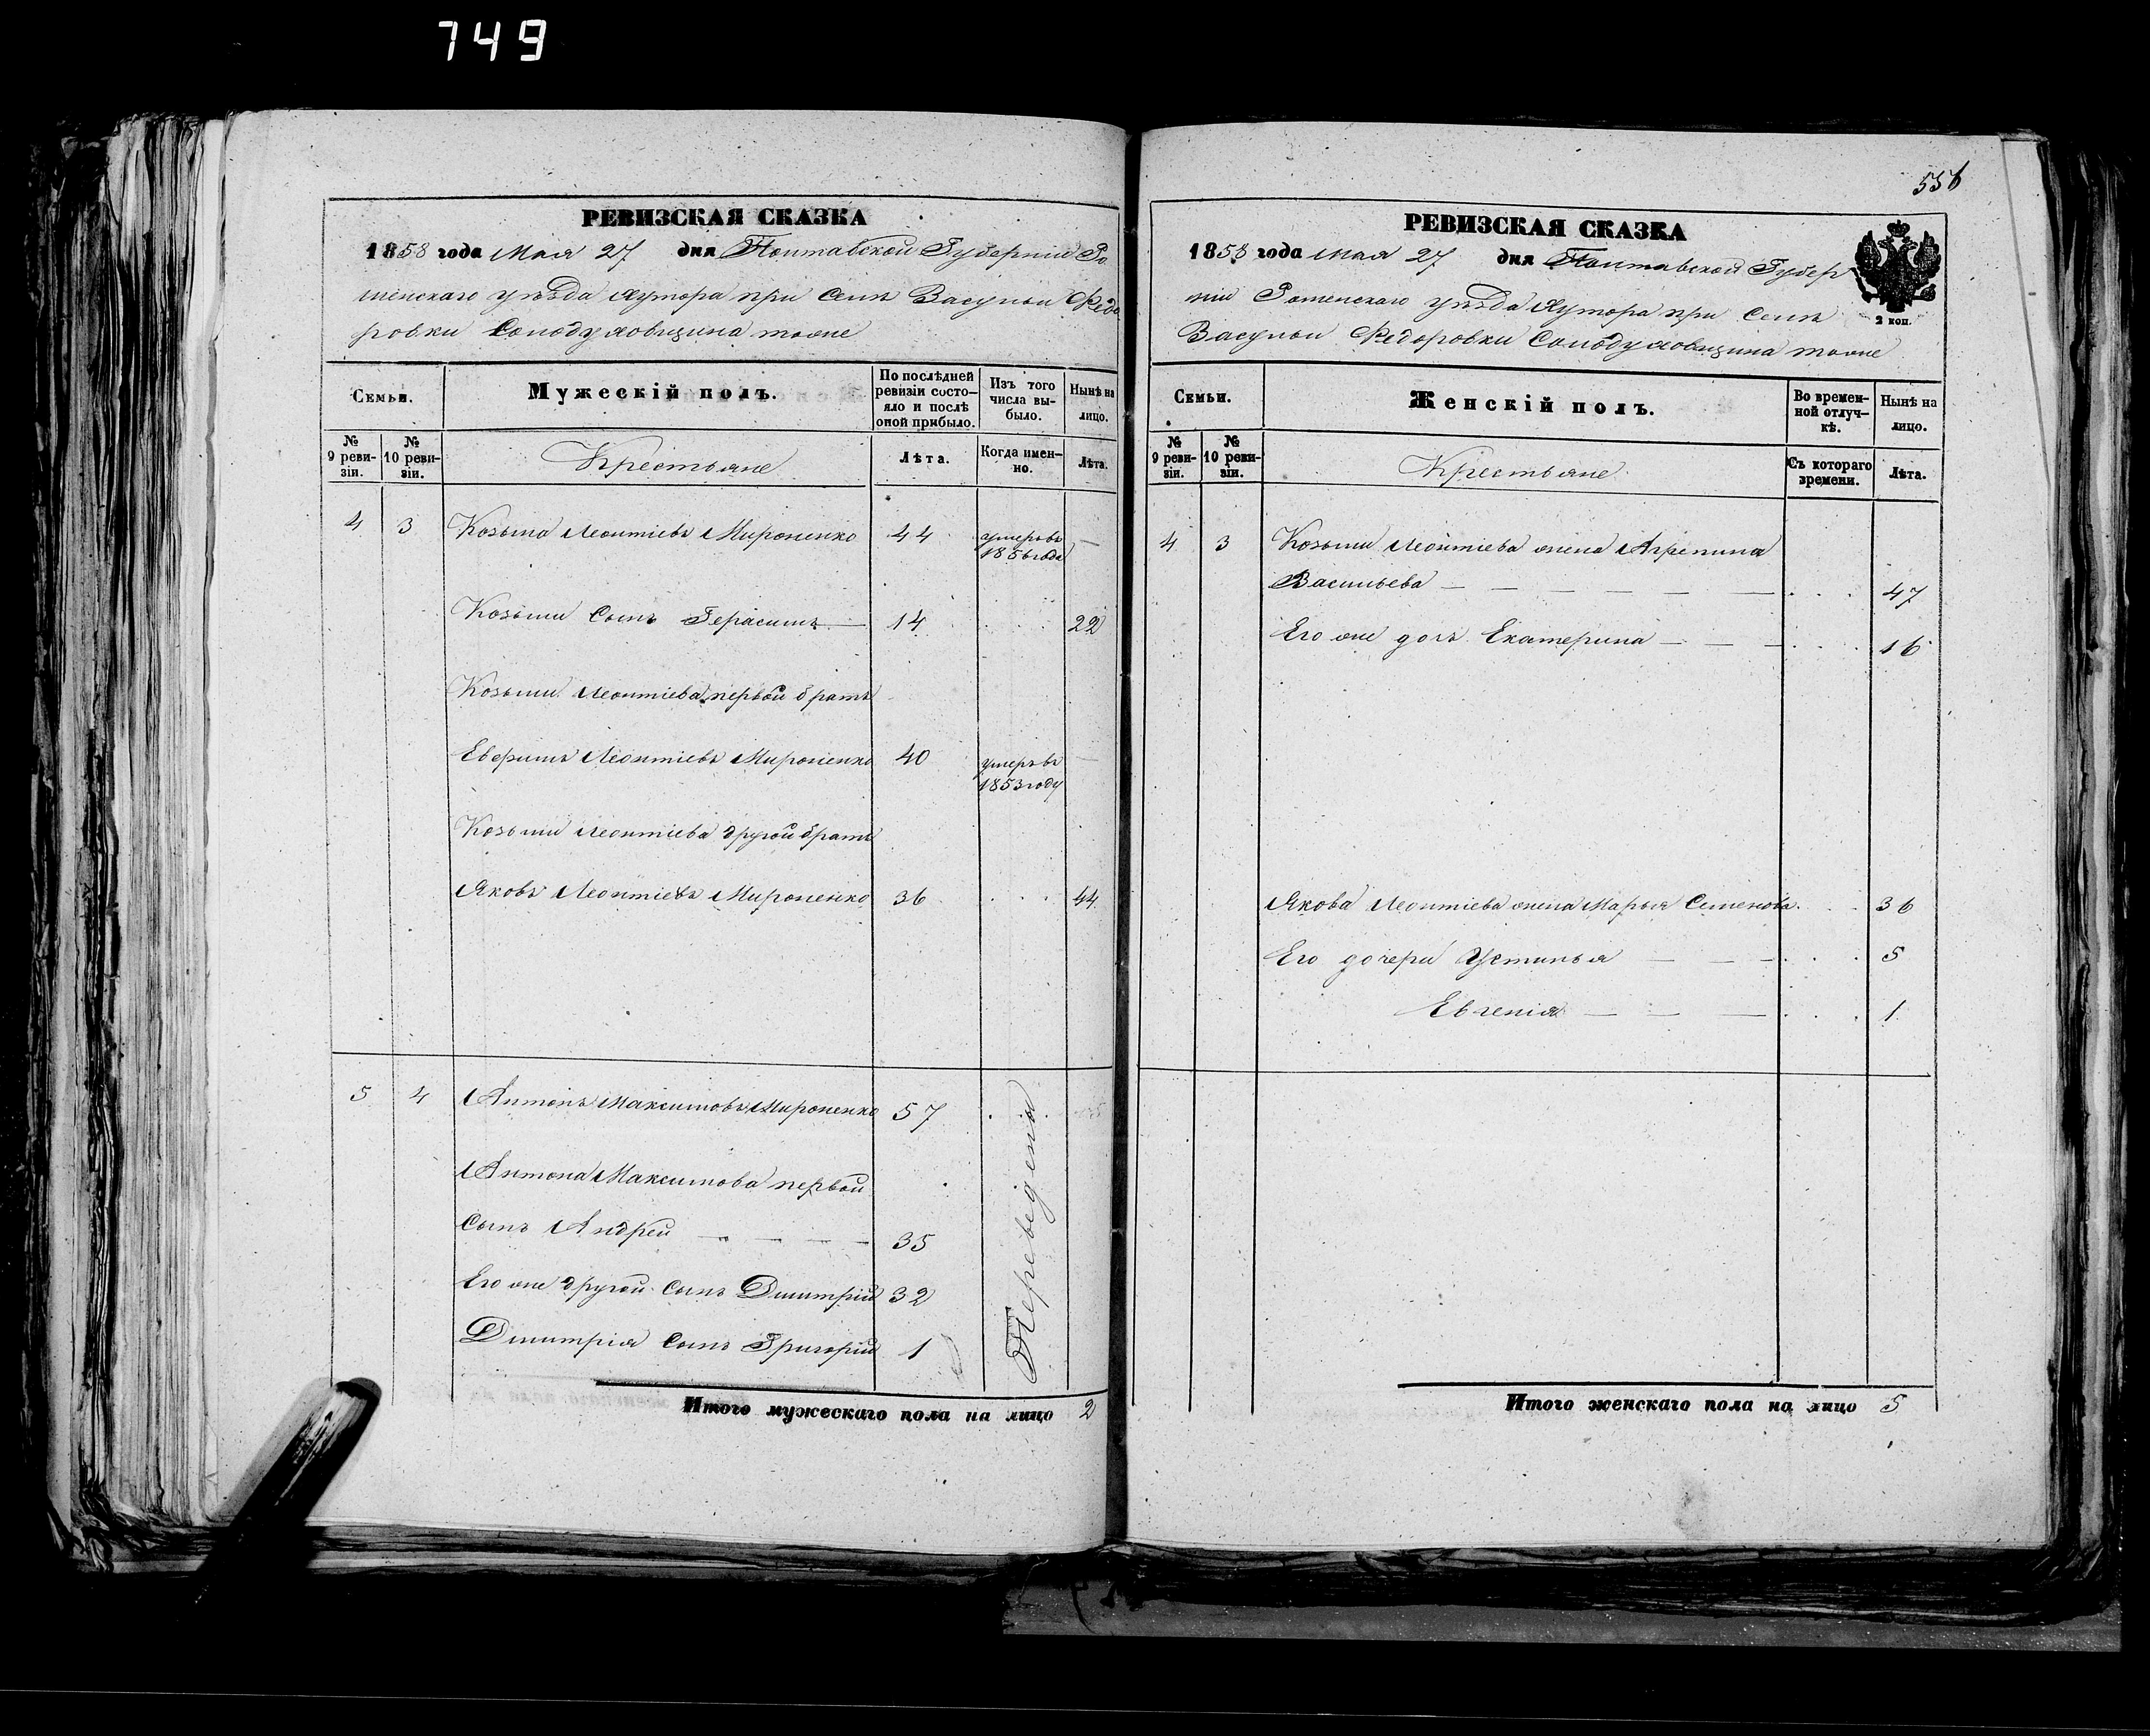 749
556
РЕВИЗСКАЯ СКАЗКА
1858 года Мая 27 дня Полтавской Губернии Ро
менскаго уѣзда хутора при селѣ Васульи Федо
ровки Солодуховщина тоже
Семьи.
Мужескій полъ.
По послѣдней ревизіи состо-
яло и послѣ оной прибыло.
Изъ того числа вы-
было.
Нынѣ на лицо.
№ 9 реви-
зіи.
№ 10 реви-
зіи.
Крестьяне
Лѣта.
Когда имен-
но.
Лѣта.
4 3 Козьма Леонтіевъ Мироненко 44 умеръ въ —
1856 года
Козьмы сынъ Герасимъ — 14 . . . 22
Козьмы Леонтіева первой братъ
Евфимъ Леонтіевъ Мироненко 40 умеръ въ —
1853 году
Козьмы Леонтіева другой братъ
Яковъ Леонтіевъ Мироненко 36 . . . 44
5 4 Антонъ Максимовъ Мироненко 57
Антона Максимова первой
сынъ Андрей — — — — 35
Его же другой сынъ Дмитрій 32
Дмитрія сынъ Григорій 1
Переведены
Итого мужескаго пола на лицо 2
РЕВИЗСКАЯ СКАЗКА
1858 года Мая 27 дня Полтавской Губер
ніи Роменскаго уѣзда хутора при селѣ
Васульи Федоровки Солодуховщина тоже
2 коп.
Семьи.
Женскій полъ.
Во времен-
ной отлуч-
кѣ.
Нынѣ на лицо.
№ 9 реви-
зіи.
№ 10 реви-
зіи.
Крестьяне
Съ котораго времени.
Лѣта.
4 3 Козьмы Леонтіева жена Агрепина
Васильева — — — — — — . . . 47
Его же дочь Екатерина — — — . . . 16
Якова Леонтіева жена Марья Семенова . . . 36
Его дочери Устинья — — — . . . 5
Евгенія — — — . . . 1
Итого женскаго пола на лицо 5